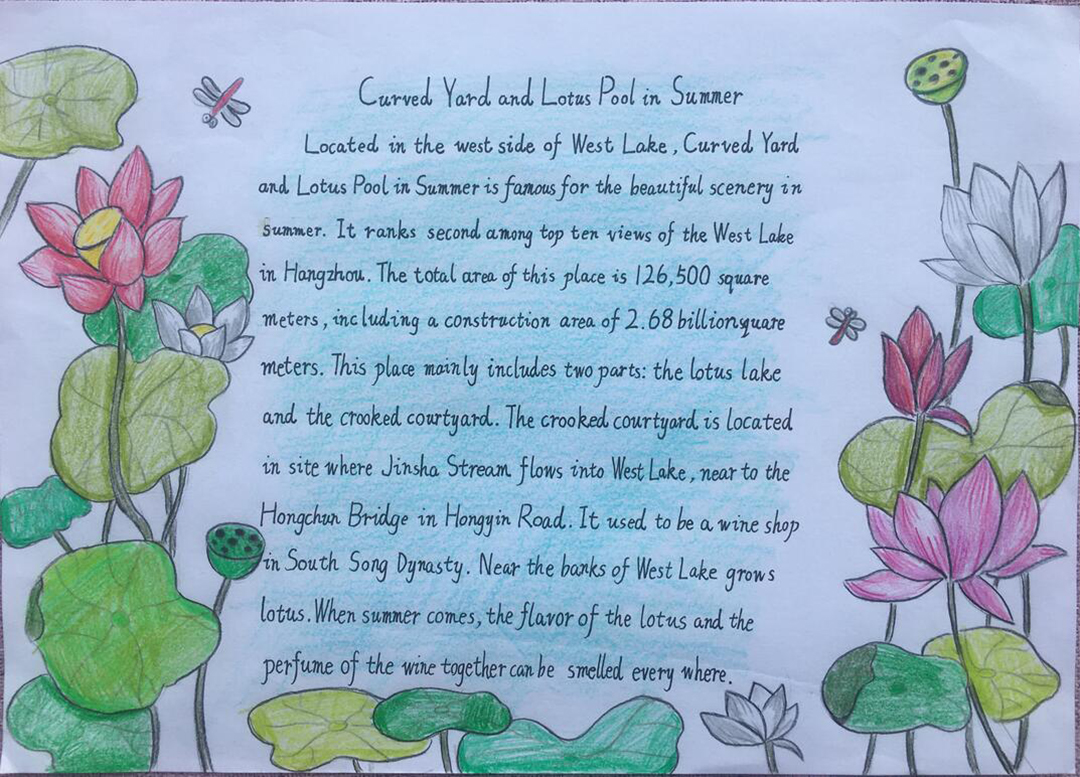 Curved Yard and Lotus Pool in Summer
Located in the west side of West Lake, Curved Yard
and Lotus Pool in Summer is famous for the beautiful scenery in
Summer. It ranks second among top ten views of the West Lake
in Hangzhou. The total area of this place is 126,500 square
meters, including a construction area of 2.68 billionquare
meters. This place mainly includes two parts: the lotus lake
and the crooked courtyard. The crooked courtyard is located
in site where Jinsha Stream flows into West Lake, near to the
Hongchun Bridge in Hongyin Road. It used to be a wine shop
in South Song Dynasty. Near the banks of West Lake grows
lotus. When summer comes, the flavor of the lotus and the
perfume of the wine together can be smelled every where.